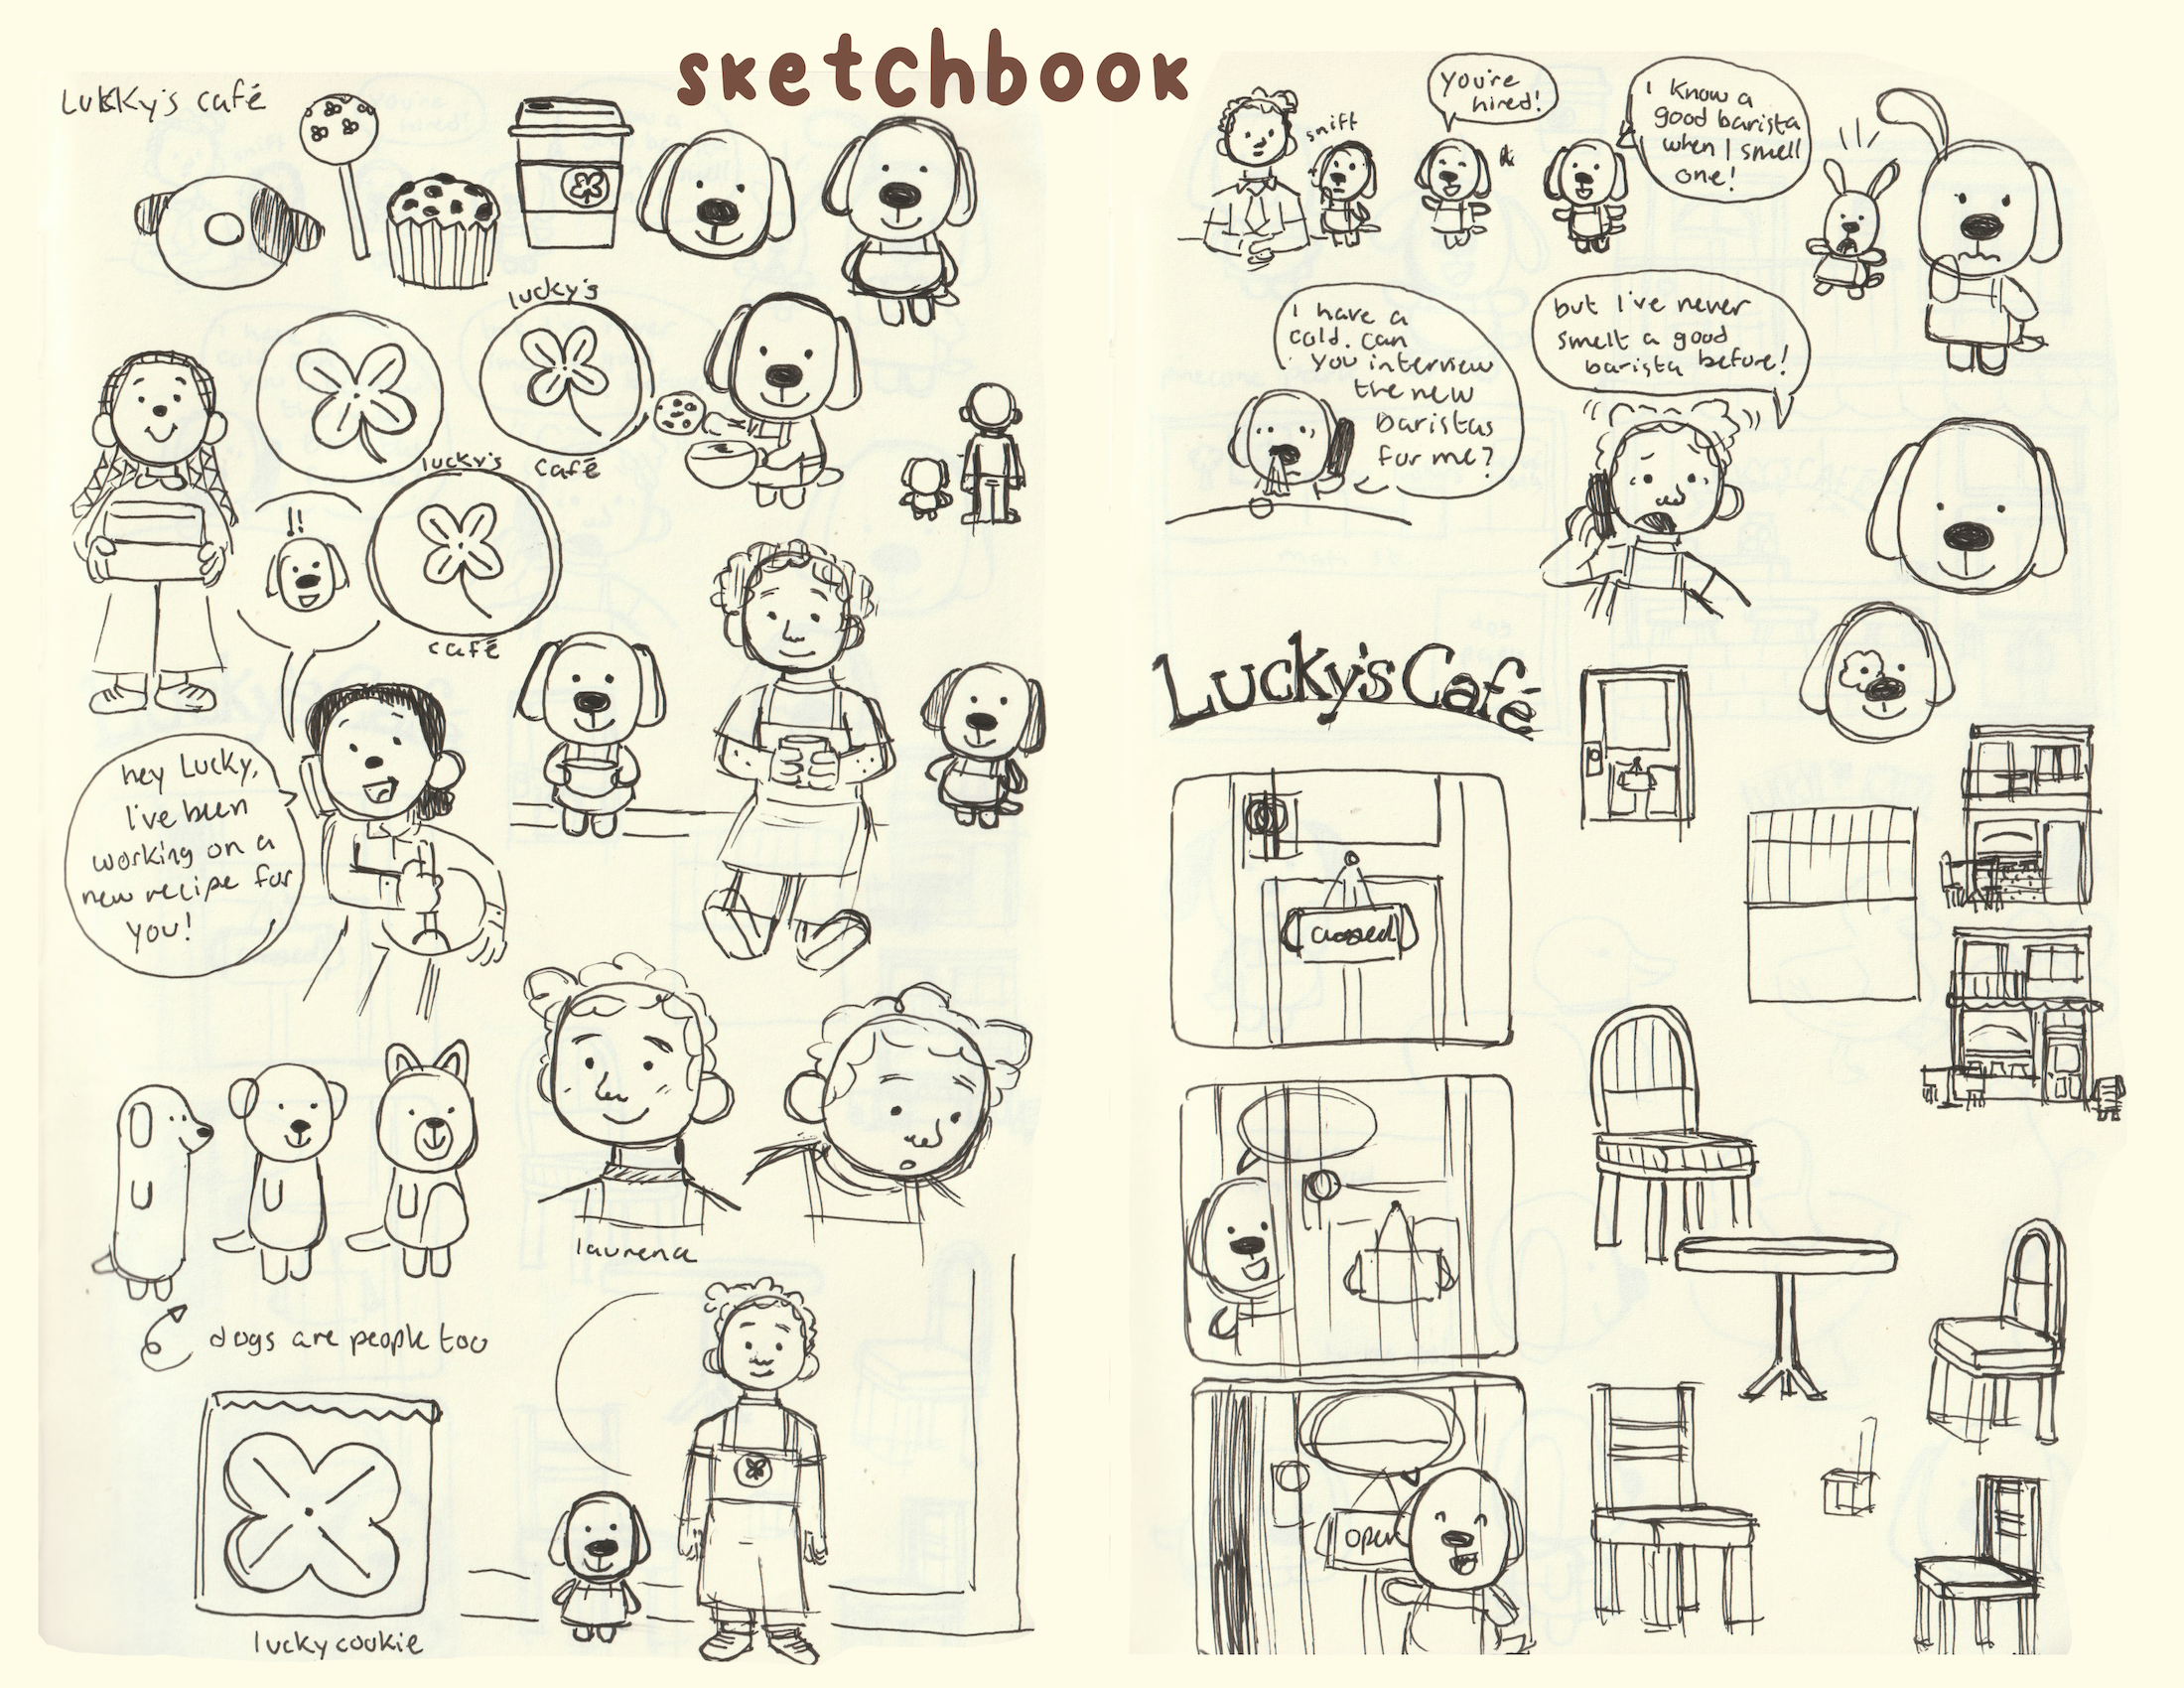 sketchbook
Lukky's café
lucky's
café
lucky's
café
!!
hey Lucky,
I've been
working on a
new recipe for
you!
laurena
dogs are people too
lucky cookie
sniff
you're
hired!
I know a
good barista
when I smell
one!
I have a
cold. can
you interview
the new
baristas
for me?
but I've never
smelt a good
barista before!
Lucky's Café
closed
open